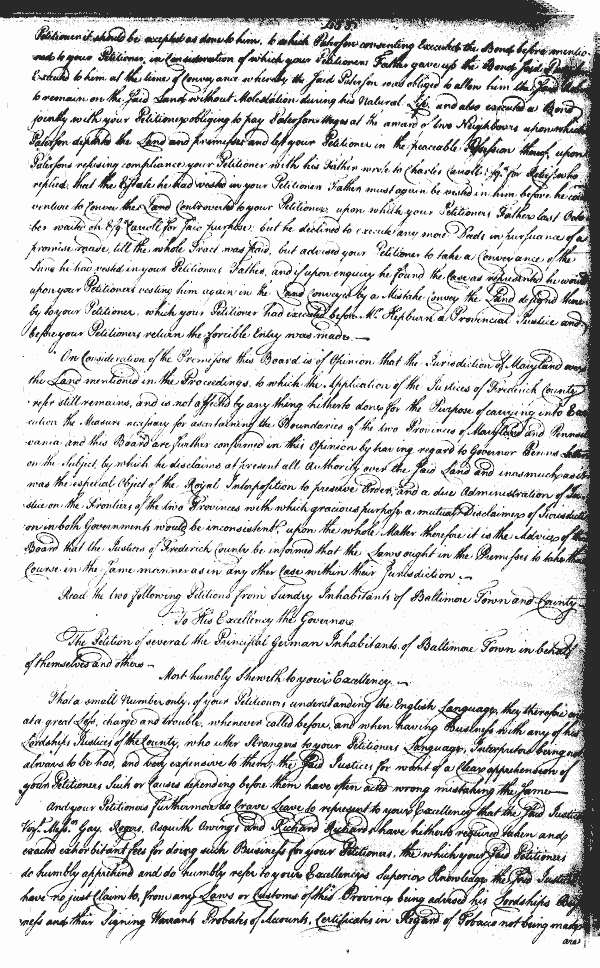 Petitioner it should be accepted as done to him, to which Paterson consenting Executed the Bond before mentio-
ned to your Petitioner, in Consideration of which your Petitioners Father gave up the Bond Said
Executed to him at the time of Conveyance whereby the Said Paterson was obliged to allow him the Said
to remain on the Said Land without Molestation during his Natural Life and also executed a Bond
jointly with your Petitioner obliging to pay Patersons Wages at the award of two Neighbours upon which
Paterson departed the Land and premisses and left your Petitioner in the peaceable Possession thereof, upon
Patersons refusing compliance your Petitioner with his Father wrote to Charles Carroll Esqr. for Relief who
replied, that the Estate he had vested in your Petitioners Father must again be vested in him before he could
venture to Convey the Land Controverted to your Petitioner, upon which your Petitioners Father last Octo
ber waited on Esqr. Carroll for said purpose, but he declined to execute any more Deeds in pursuance of a
promise made, till the whole Tract was paid, but advised your Petitioner to take a Conveyance of the
Land he had vested in your Petitioners Father, and if upon enquiry he found the Case as represented he would
upon your Petitioners vesting him again in the Land Conveyed by a Mistake Convey the Land designed
by to your Petitioner, which your Petitioner had executed before Mr. Hepburn a Provincial Justice and
before your Petitioners return the forcible Entry was made —
On Consideration of the Premisses this Board is of Opinion that the Jurisdiction of Maryland over
the Land mentioned in the Proceedings, to which the Application of the Justices of Frederick County
refer still remains, and is not affected by any thing hitherto done for the Purpose of carrying into Exe
cution the Measure necessary for ascertaining the Boundaries of the two Provinces of Maryland and Pennsyl
vania and this Board are further confirmed in this Opinion by having regard to Governor Penns Letter
on the Subject, by which he disclaims at present all Authority over the Said Land and inasmuch as it
was the especial Object of the Royal Interposition to preserve Order, and a due Administration of Ju
stice on the Frontiers of the two Provinces with which gracious purpose a mutual Disclaimer of Jurisdicti
on in both Governments would be inconsistent, upon the whole Matter therefore it is the Advice of the
Board that the Justices of Frederick County be informed that the Laws ought in the Premisses to take their
Course in the same manner as in any other Case within their Jurisdiction. —
Read the two following Petitions from Sundry Inhabitants of Baltimore Town and County
To His Excellency the Governor
The Petition of several the Principal German Inhabitants of Baltimore Town in behalf
of themselves and others —
Most humbly Sheweth to your Excellency —
That a small Number only, of your Petitioners understanding the English Language, they therefore are
at a great Loss, charge and trouble, whenever called before, and when having Business with any of his
Lordships Justices of the County, who utter Strangers to your Petitioners Language, Interpreters being not
always to be had, and very expensive to them, the Said Justices for want of a Clear apprehension of
your Petitioners Suit or Causes depending before them have often acted wrong mistaking the Same —
And your Petitioners furthermore do Crave Leave to represent to your Excellency that the Said Justices
Vizt. Messrs. Gay, Rogers, Asquith Owings and Richard Richards have hitherto required taken and
exacted exhorbitant fees for doing such Business for your Petitioners, the which your Said Petitioners
do humbly apprehend and do humbly refer to your Excellency's Superior Knowledge the Said Justices
have no just Claim to, from any Laws or Customs of this Province being advised his Lordships Busi
ness and their Signing Warrants Probates of Accounts, Certificates in Regard of Tobacco not being made
are